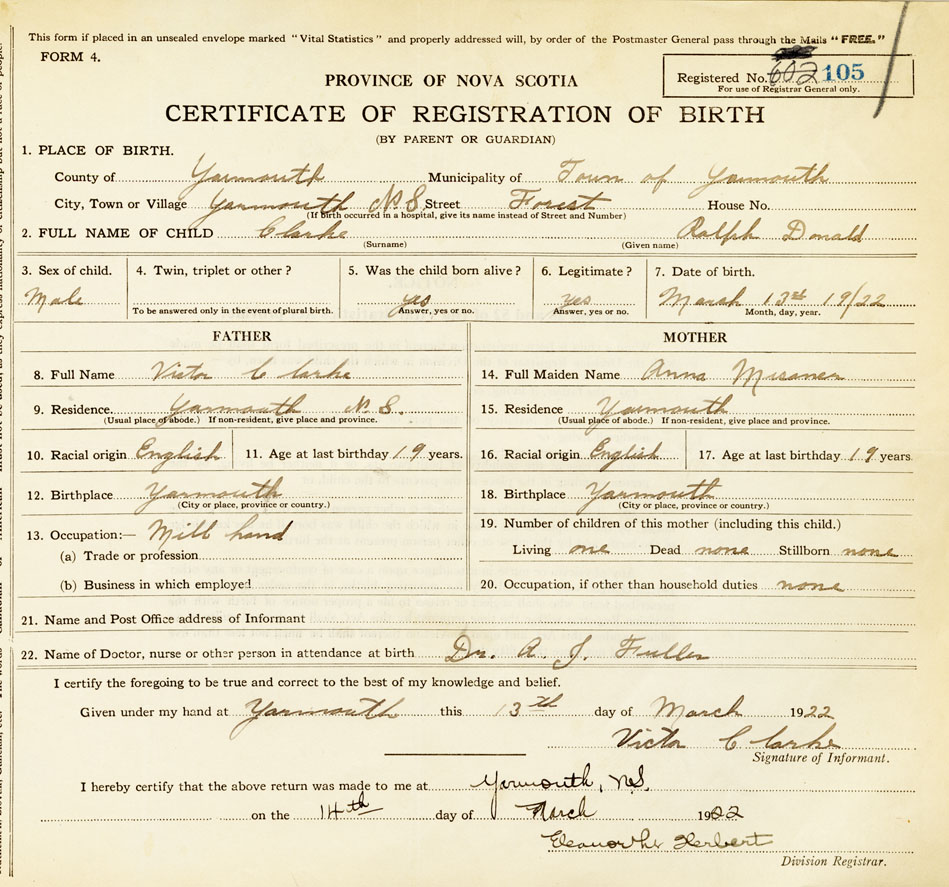 This form if placed in an unsealed envelope marked "Vital Statistics" and properly addressed will, by order of the Postmaster General pass through the Mails "FREE."
FORM 4.
Registered No. 602 105
For use of Registrar General only.
PROVINCE OF NOVA SCOTIA
CERTIFICATE OF REGISTRATION OF BIRTH
(BY PARENT OR GUARDIAN)
1. PLACE OF BIRTH.
County of Yarmouth Municipality of Town of Yarmouth
City, Town or Village Yarmouth N.S. Street Forest House No.
(If birth occurred in a hospital, give its name instead of Street and Number)
2. FULL NAME OF CHILD Clarke Ralph Donald
(Surname) (Given name)
3. Sex of child. 4. Twin, triplet or other? 5. Was the child born alive? 6. Legitimate? 7. Date of birth.
Male yes yes March 13th 19/22
To be answered only in the event of plural birth. Answer, yes or no. Answer, yes or no. Month, day, year.
FATHER MOTHER
8. Full Name Victor Clarke 14. Full Maiden Name Anna Misener
9. Residence. Yarmouth N.S. 15. Residence Yarmouth
(Usual place of abode.) If non-resident, give place and province. (Usual place of abode.) If non-resident, give place and province.
10. Racial origin English 11. Age at last birthday 19 years. 16. Racial origin English 17. Age at last birthday 19 years
12. Birthplace Yarmouth 18. Birthplace Yarmouth
(City or place, province or country.) (City or place, province or country.)
13. Occupation:— Mill hand 19. Number of children of this mother (including this child.)
(a) Trade or profession Living one Dead none Stillborn none
(b) Business in which employed 20. Occupation, if other than household duties none
21. Name and Post Office address of Informant
22. Name of Doctor, nurse or other person in attendance at birth Dr. A. J. Fuller
I certify the foregoing to be true and correct to the best of my knowledge and belief.
Given under my hand at Yarmouth this 13th day of March 1922
Victor Clarke
Signature of Informant.
I hereby certify that the above return was made to me at Yarmouth, N.S.
on the 14th day of March 1922
Herbert
Division Registrar.